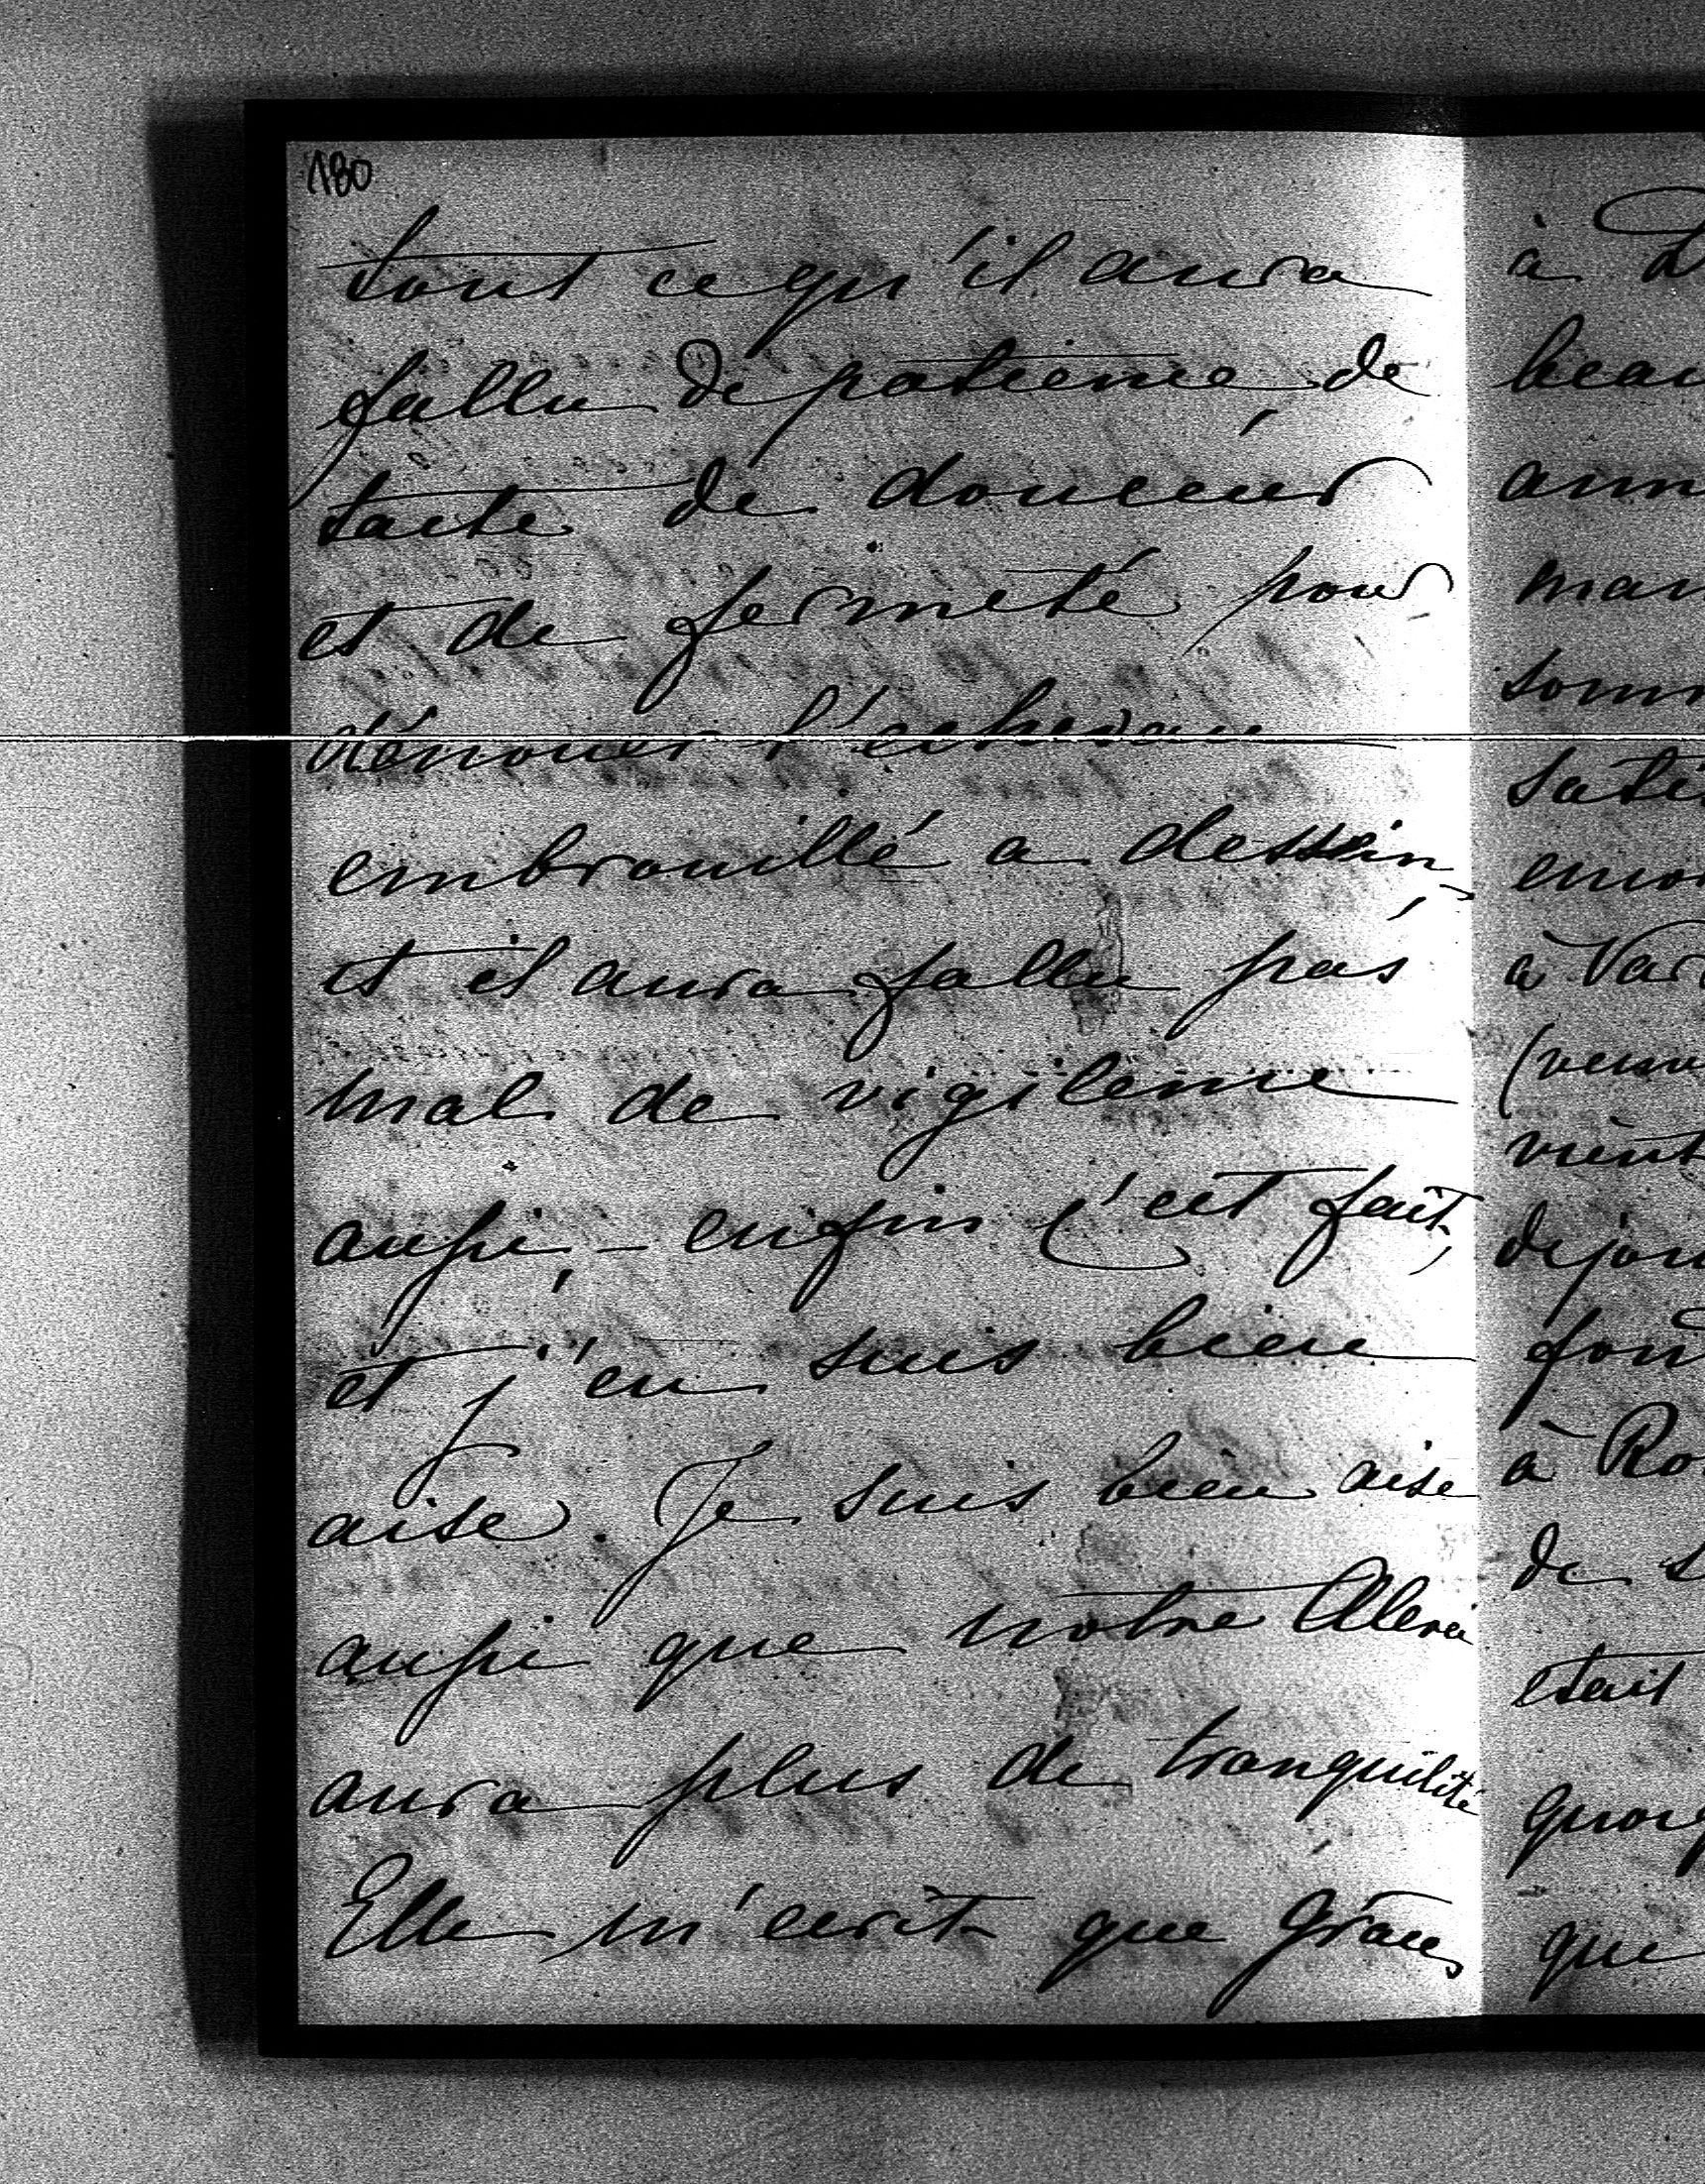 180
tout ce qu'il aura
fallu de patience de
tacte de douceur
et de fermeté pour
dénouer l'echevau
embrouillé a dessein,
et il aura fallu pas
mal de vigilence
aussi, – enfin c'est fait,
et j'en suis bien
aise. Je suis bien aise
aussi que notre
aura plus de tranquilité
Elle m'ecrit que
à
sati
à Var
vient
à Ro
de
etait
que